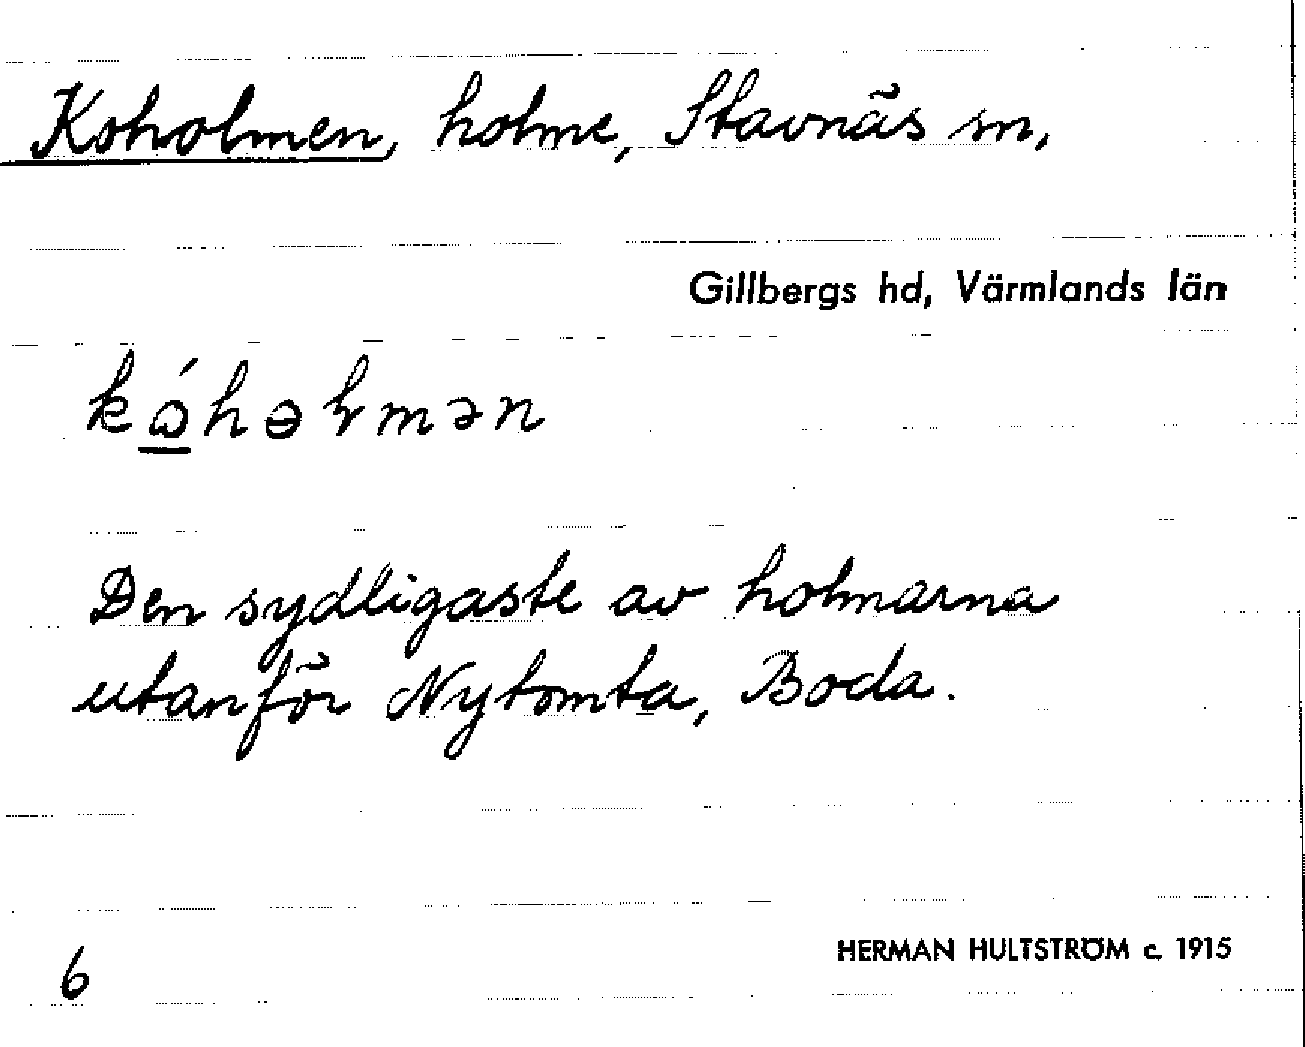 Koholmen, holme, Stavnäs sn,
Gillbergs hd, Värmlands län
Den sydligaste av holmarna
utanför Nytomta, Boda.
6
HERMAN HULTSTRÖM c. 1915